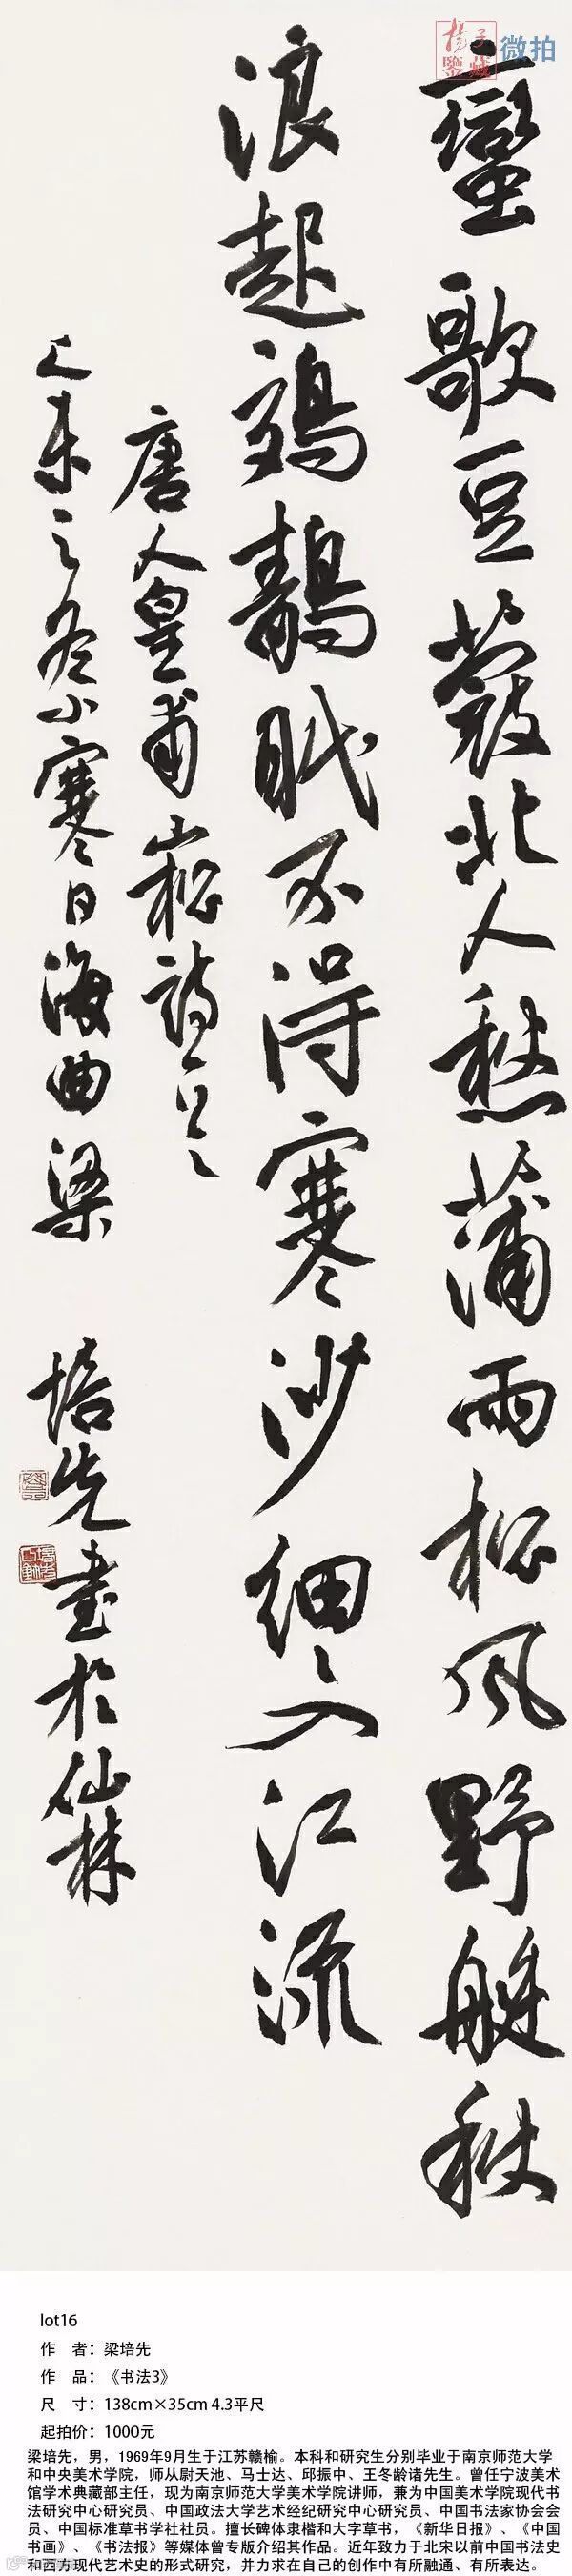 微拍
蠻歌豆蔻北人愁蒲雨松風野艇秋
浪起鵁鶄眠不得寒沙細々入江流
唐人皇甫崧詩
乙未之冬小寒日海曲梁培先書於仙林
lot16
作 者：梁培先
作 品：《书法3》
尺 寸：138cm×35cm 4.3平尺
起拍价：1000元
梁培先，男，1969年9月生于江苏赣榆。本科和研究生分别毕业于南京师范大学
和中央美术学院，师从尉天池、马士达、邱振中、王冬龄诸先生。曾任宁波美术
馆学术典藏部主任，现为南京师范大学美术学院讲师，兼为中国美术学院现代书
法研究中心研究员、中国政法大学艺术经纪研究中心研究员、中国书法家协会会
员、中国标准草书学社社员。擅长碑体隶楷和大字草书，《新华日报》、《中国
书画》、《书法报》等媒体曾专版介绍其作品。近年致力于北宋以前中国书法史
和西方现代艺术史的形式研究，并力求在自己的创作中有所融通、有所表达。